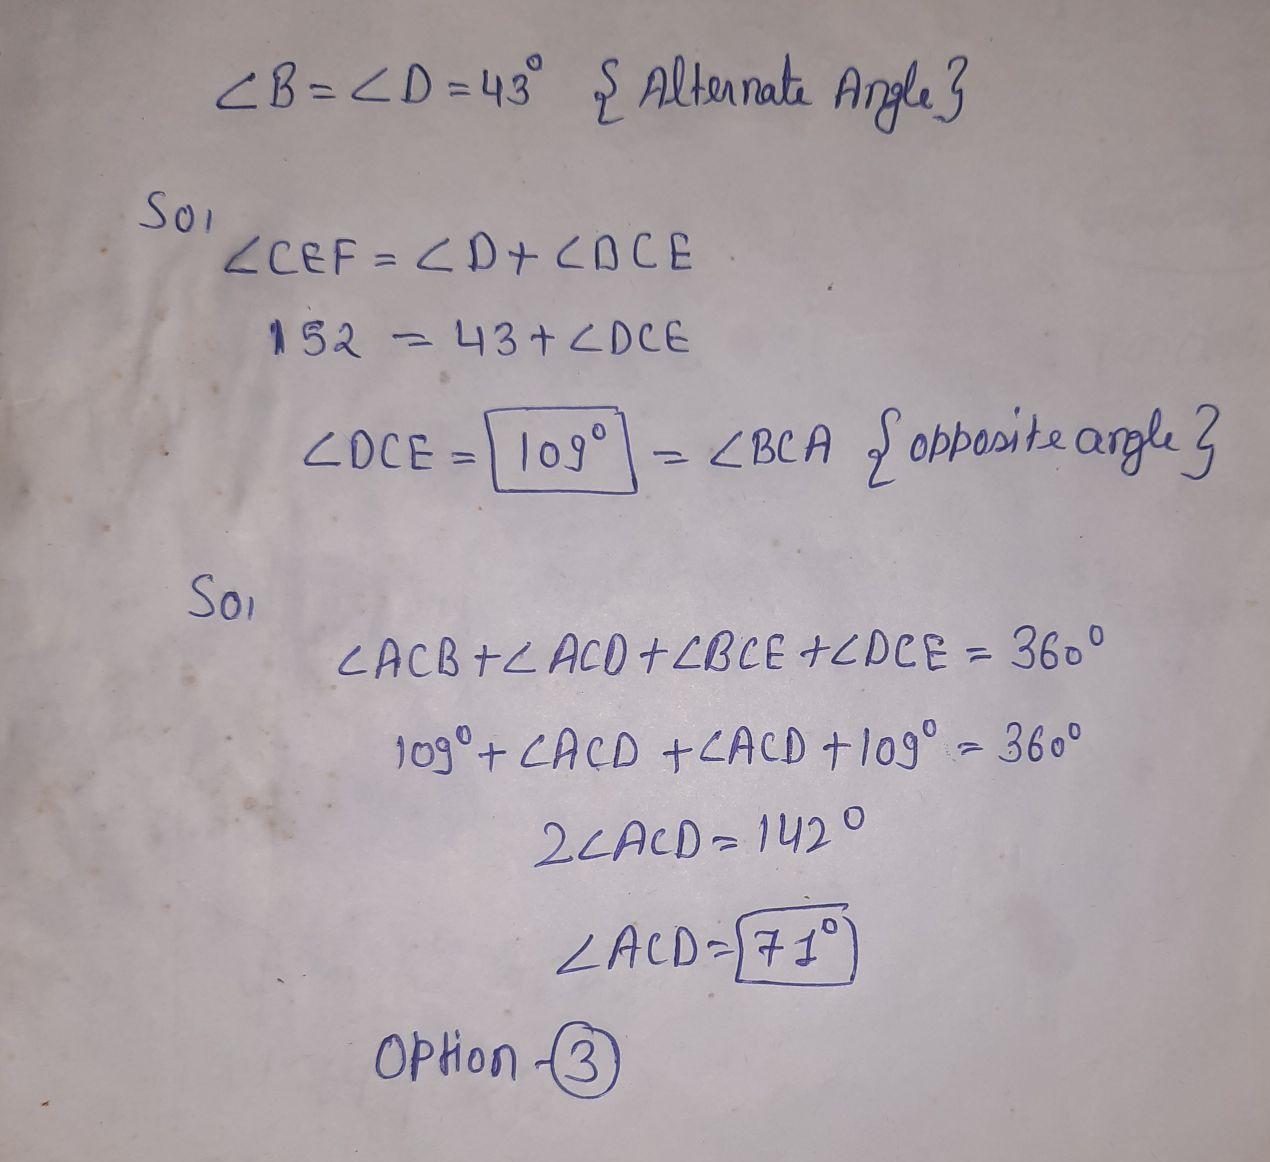 ∠B = ∠D = 43° { Alternate Angle }
So,
∠CEF = ∠D + ∠DCE
152 = 43 + ∠DCE
∠DCE = 109° = ∠BCA { opposite angle }
So,
∠ACB + ∠ACD + ∠BCE + ∠DCE = 360°
109° + ∠ACD + ∠ACD + 109° = 360°
2∠ACD = 142°
∠ACD = 71°
Option - 3